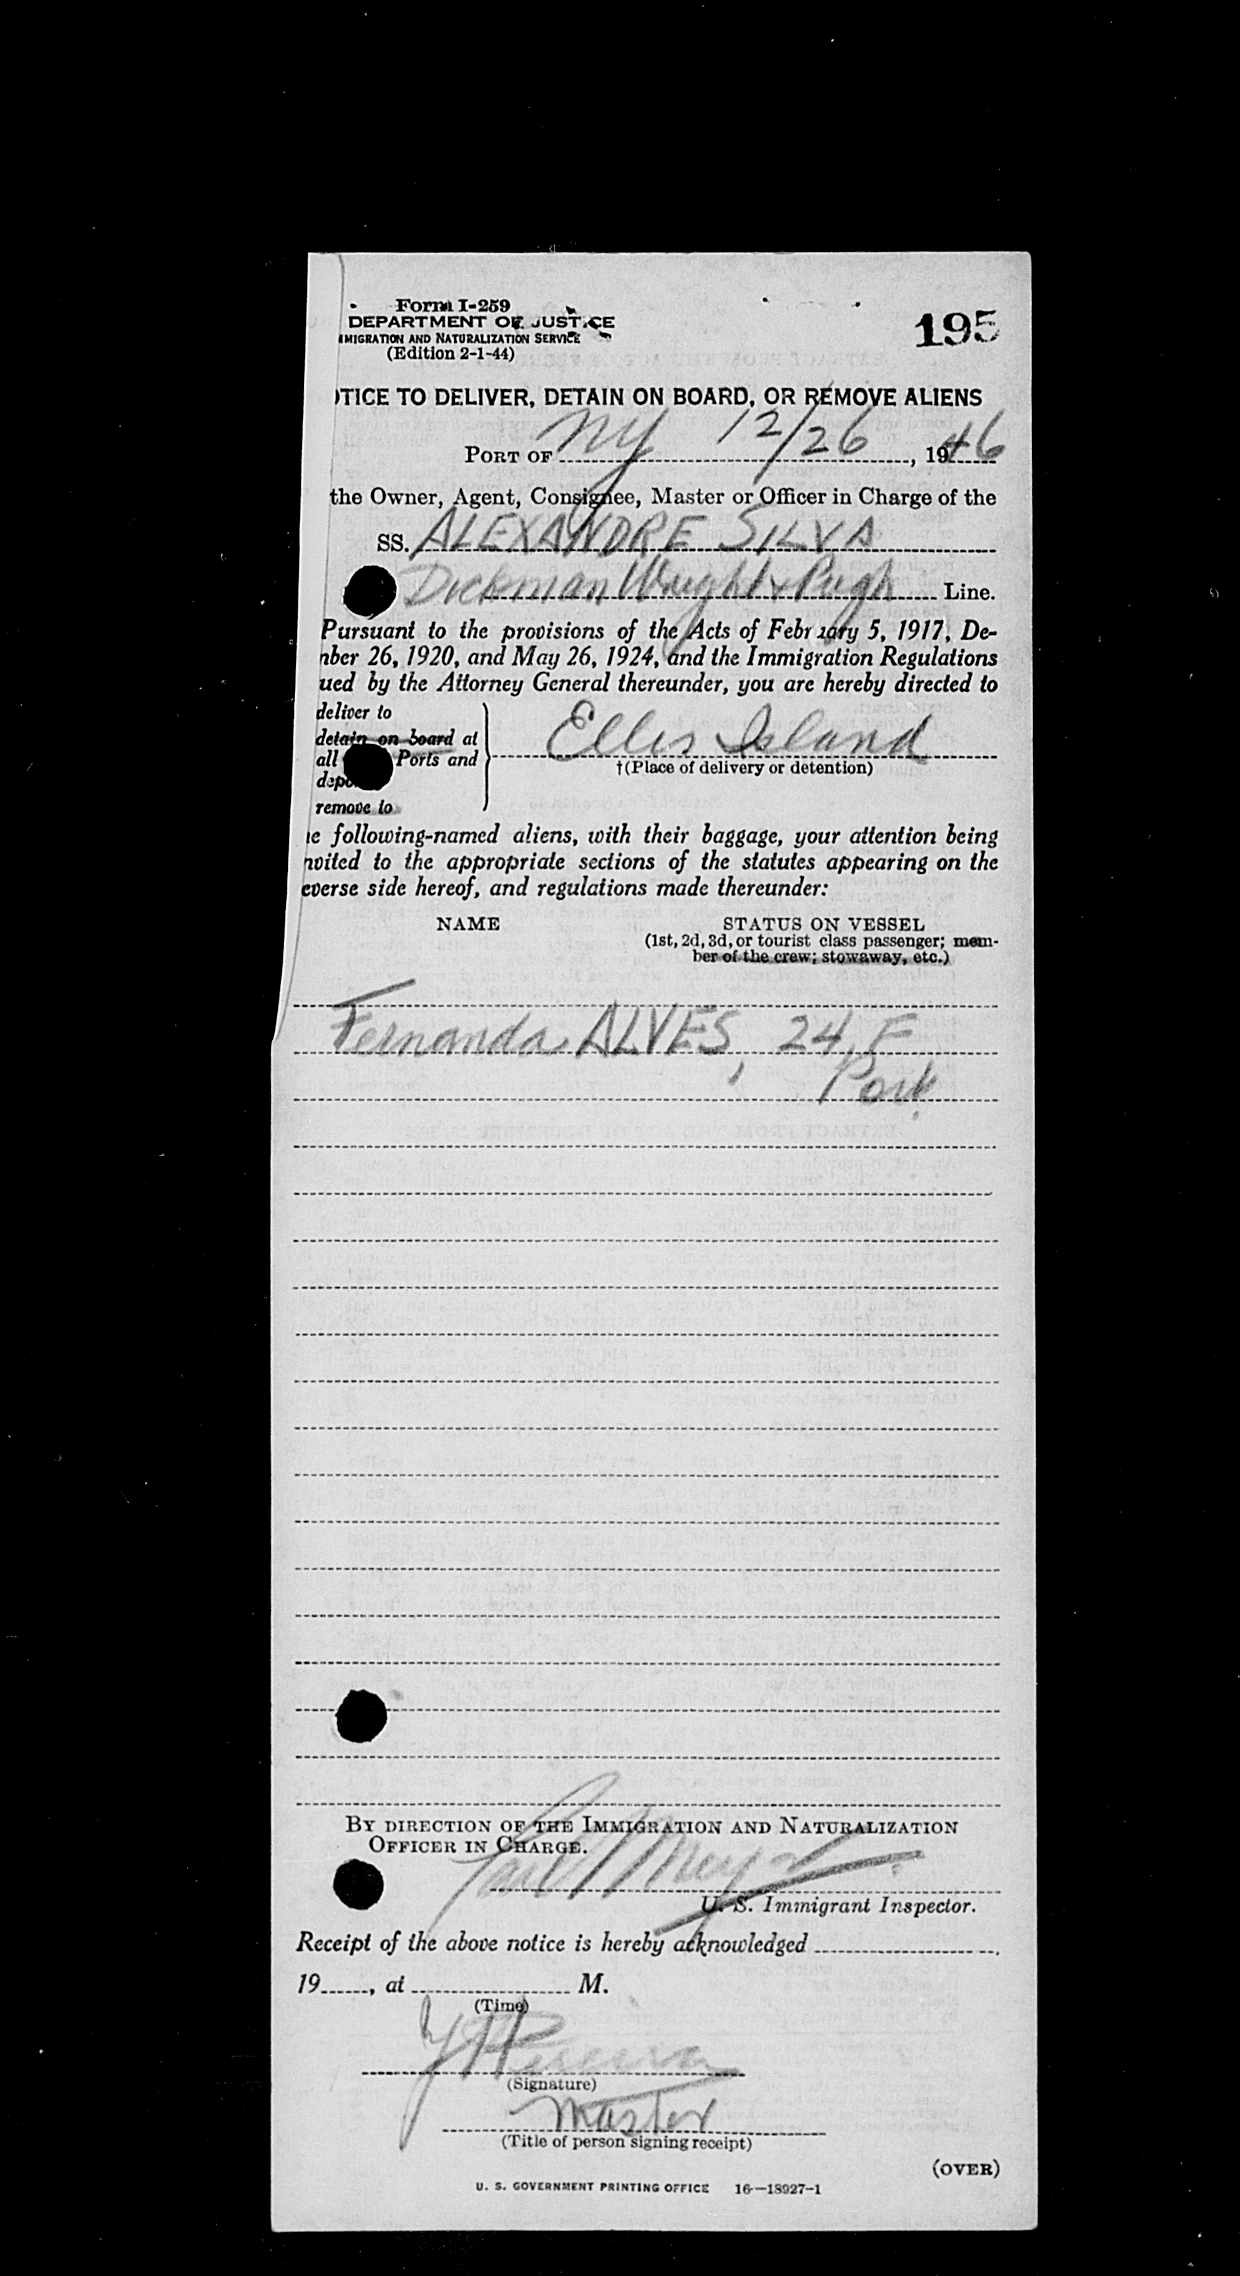 Form I-259
DEPARTMENT OF JUSTICE
MIGRATION AND NATURALIZATION SERVICE
(Edition 2-1-44)
195
OTICE TO DELIVER, DETAIN ON BOARD, OR REMOVE ALIENS
PORT OF NY 12/26, 1946
the Owner, Agent, Consignee, Master or Officer in Charge of the
SS. ALEXANDRE SILVA
Dickman Wright & Pugh Line.
Pursuant to the provisions of the Acts of February 5, 1917, De-
mber 26, 1920, and May 26, 1924, and the Immigration Regulations
ued by the Attorney General thereunder, you are hereby directed to
deliver to
detain on board at
all Ports and
depo
remove to
Ellis Island
†(Place of delivery or detention)
e following-named aliens, with their baggage, your attention being
nvited to the appropriate sections of the statutes appearing on the
everse side hereof, and regulations made thereunder:
NAME STATUS ON VESSEL
(1st, 2d, 3d, or tourist class passenger; mem-
ber of the crew; stowaway, etc.)
Fernanda ALVES, 24, F
Port.
BY DIRECTION OF THE IMMIGRATION AND NATURALIZATION
OFFICER IN CHARGE.
U. S. Immigrant Inspector.
Receipt of the above notice is hereby acknowledged
19, at M.
(Time)
Pereira
(Signature)
Master
(Title of person signing receipt)
(OVER)
U. S. GOVERNMENT PRINTING OFFICE 16—18927-1